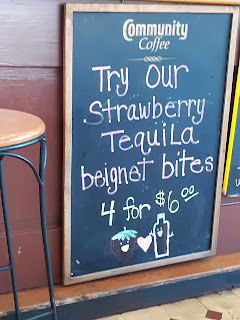 Community
Coffee
Try Our
Strawberry
Tequila
beignet bites
4 for $6.00